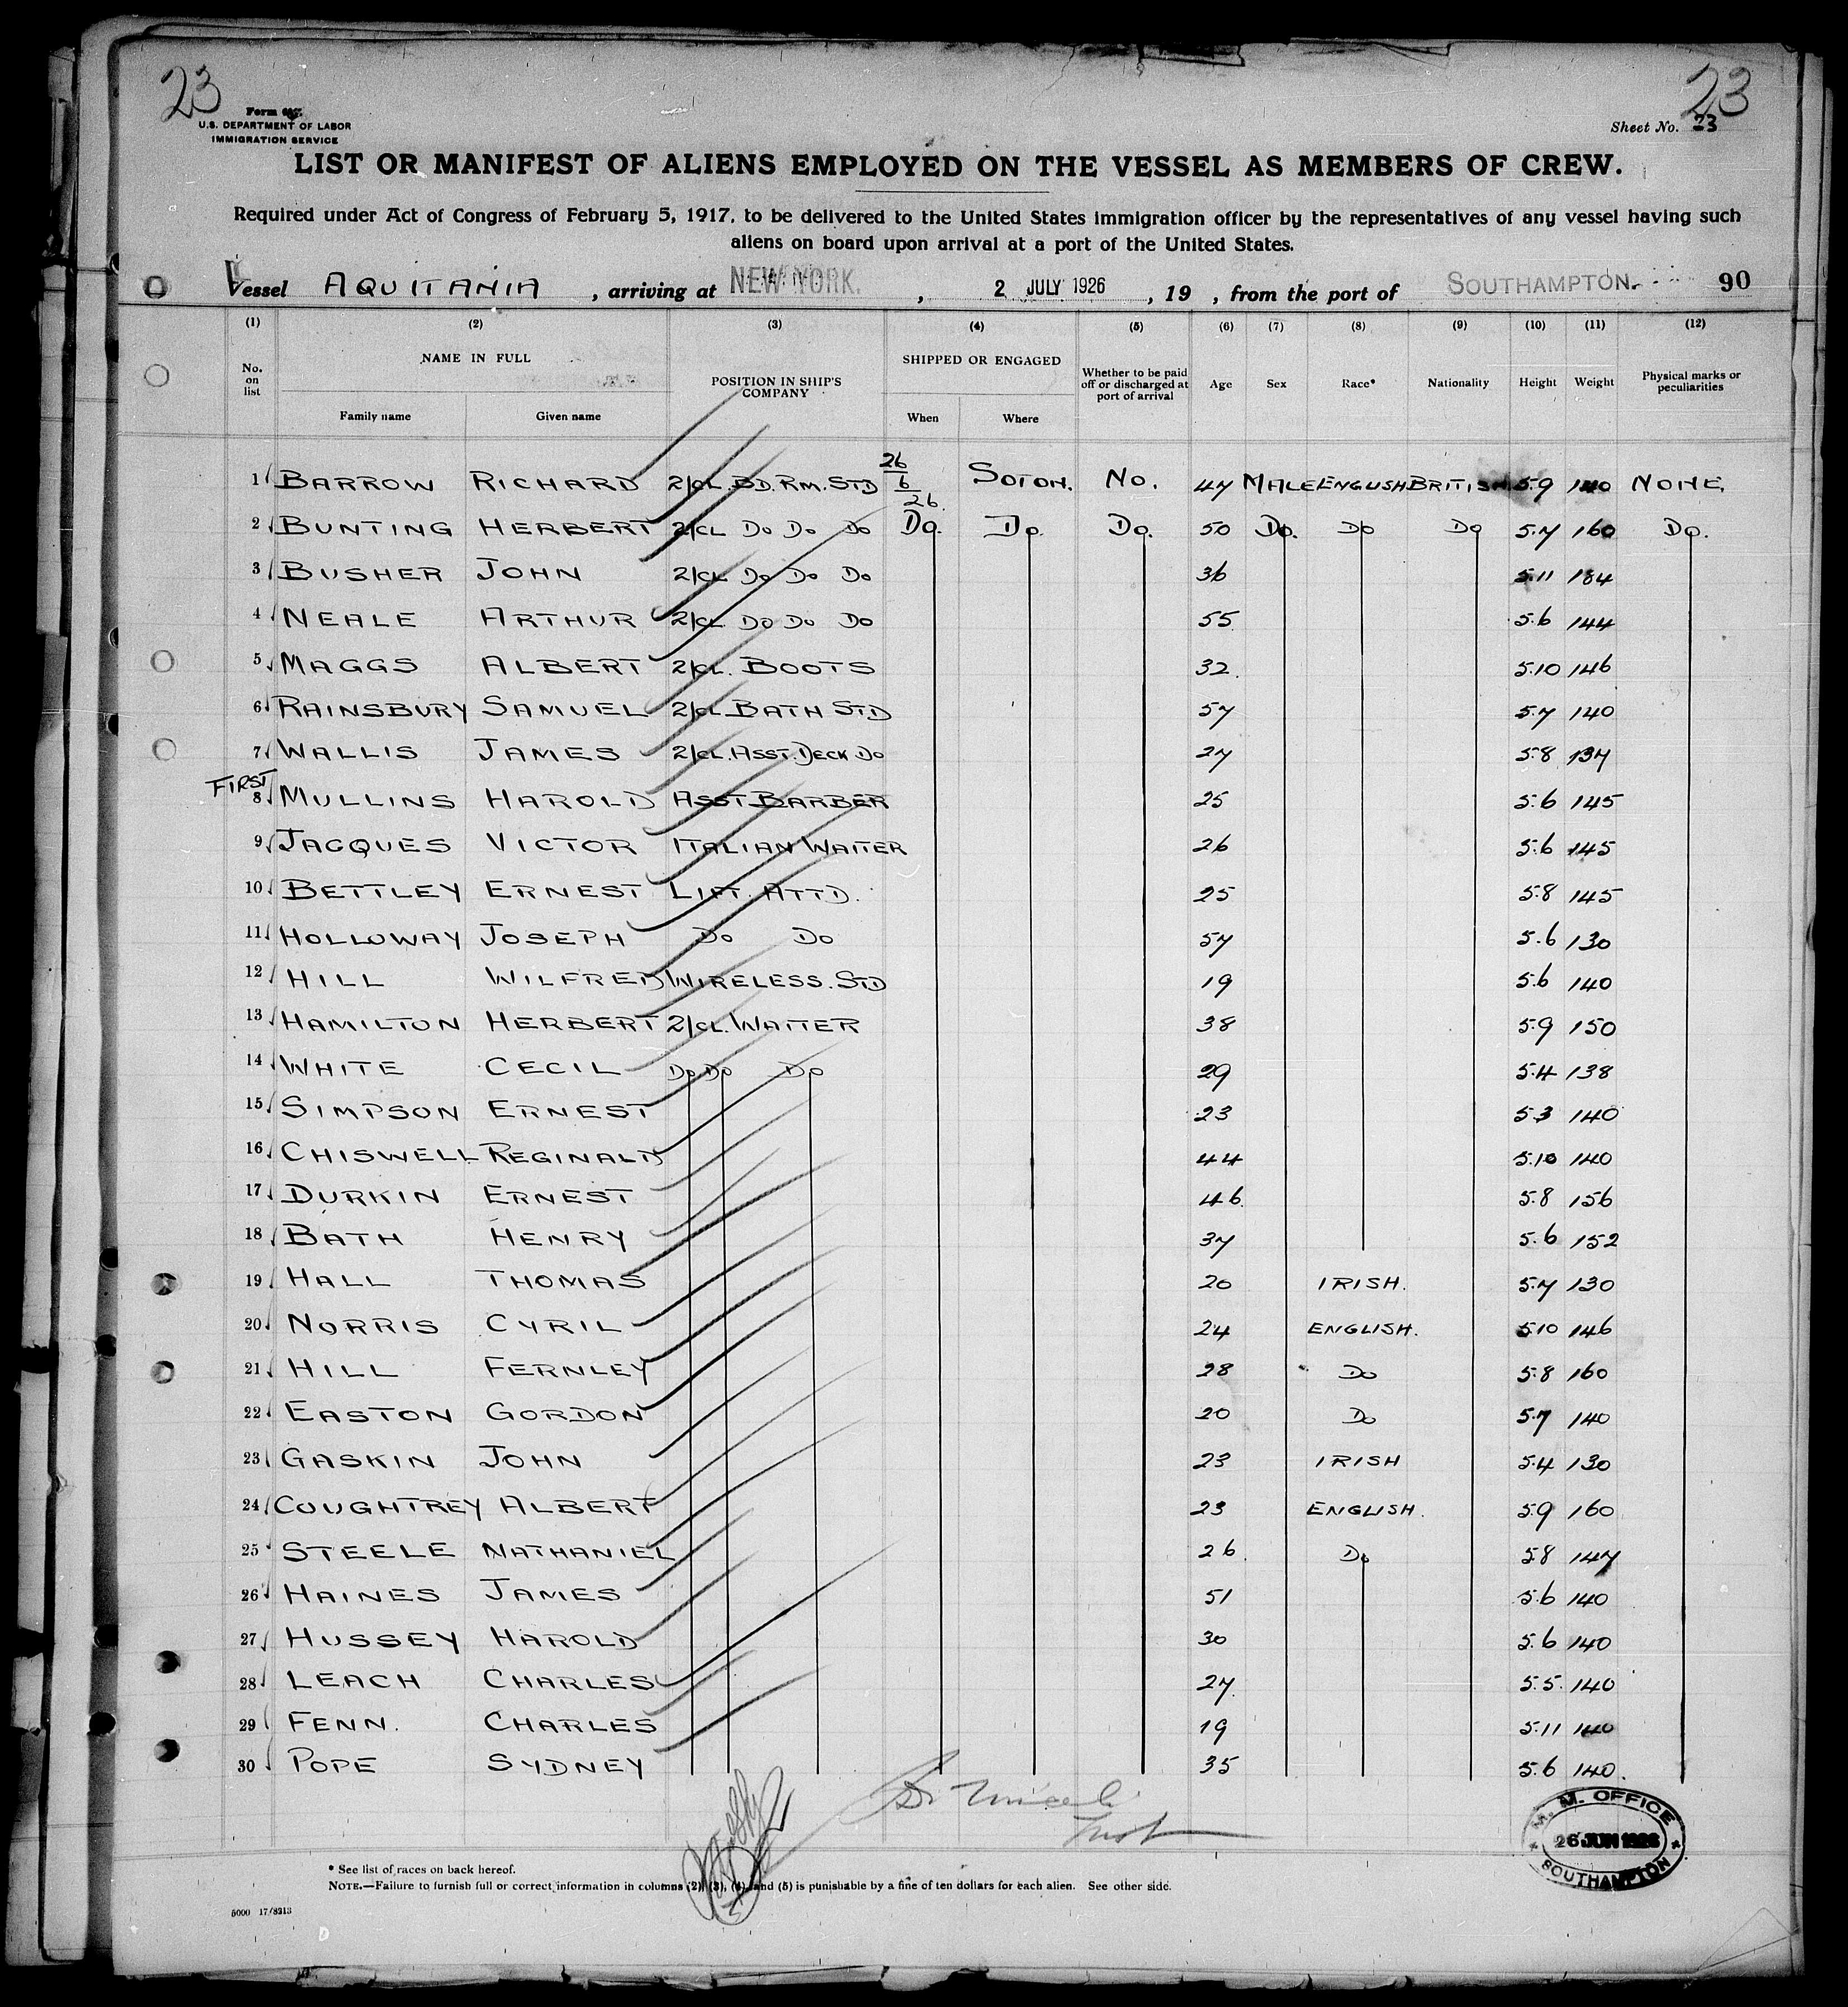 23
23
Form
U.S. DEPARTMENT OF LABOR
IMMIGRATION SERVICE
Sheet No. 23
LIST OR MANIFEST OF ALIENS EMPLOYED ON THE VESSEL AS MEMBERS OF CREW.
Required under Act of Congress of February 5, 1917, to be delivered to the United States immigration officer by the representatives of any vessel having such
aliens on board upon arrival at a port of the United States.
Vessel AQUITANIA , arriving at NEW YORK. , 2 JULY 1926 , 19 , from the port of SOUTHAMPTON. 90
(1) (2) (3) (4) (5) (6) (7) (8) (9) (10) (11) (12)
No. on list NAME IN FULL Family name Given name POSITION IN SHIP'S COMPANY SHIPPED OR ENGAGED When Where Whether to be paid off or discharged at port of arrival Age Sex Race* Nationality Height Weight Physical marks or peculiarities
1 BARROW RICHARD 2/CL. BD. RM. STD 26/6/26. SOTON. NO. 47 MALE ENGLISH BRITISH 5.9 140 NONE
2 BUNTING HERBERT 2/CL DO DO DO DO. DO. DO. 50 DO. DO DO 5.7 160 DO.
3 BUSHER JOHN 2/CL DO DO DO 36 5.11 184
4 NEALE ARTHUR 2/CL. DO DO DO 55 5.6 144
5 MAGGS ALBERT 2/CL. BOOTS 32. 5.10 146
6 RAINSBURY SAMUEL 2/CL BATH STD 57 5.7 140
7 WALLIS JAMES 2/CL. ASST. DECK DO 27 5.8 137
FIRST
8 MULLINS HAROLD ASST BARBER 25 5.6 145
9 JACQUES VICTOR ITALIAN WAITER 26 5.6 145
10 BETTLEY ERNEST LIFT. ATTD. 25 5.8 145
11 HOLLOWAY JOSEPH DO DO 57 5.6 130
12 HILL WILFRED WIRELESS. STD 19 5.6 140
13 HAMILTON HERBERT 2/CL. WAITER 38 5.9 150
14 WHITE CECIL DO DO DO 29 5.4 138
15 SIMPSON ERNEST 23 5.3 140
16 CHISWELL REGINALD 44 5.10 140
17 DURKIN ERNEST 46. 5.8 156
18 BATH HENRY 37 5.6 152
19 HALL THOMAS 20 IRISH. 5.7 130
20 NORRIS CYRIL 24 ENGLISH. 5.10 146
21 HILL FERNLEY 28 DO 5.8 160
22 EASTON GORDON 20 DO 5.7 140
23 GASKIN JOHN 23 IRISH 5.4 130
24 COUGHTREY ALBERT 23 ENGLISH. 5.9 160
25 STEELE NATHANIEL 26. DO 5.8 147
26 HAINES JAMES 51 5.6 140
27 HUSSEY HAROLD 30 5.6 140
28 LEACH CHARLES 27. 5.5. 140
29 FENN. CHARLES 19 5.11 140
30 POPE SYDNEY 35 5.6 140.
M. M. OFFICE
26 JUN 1926
SOUTHAMPTON
* See list of races on back hereof.
NOTE.—Failure to furnish full or correct information in columns (2), (3), (4), and (5) is punishable by a fine of ten dollars for each alien. See other side.
5000 17/8213